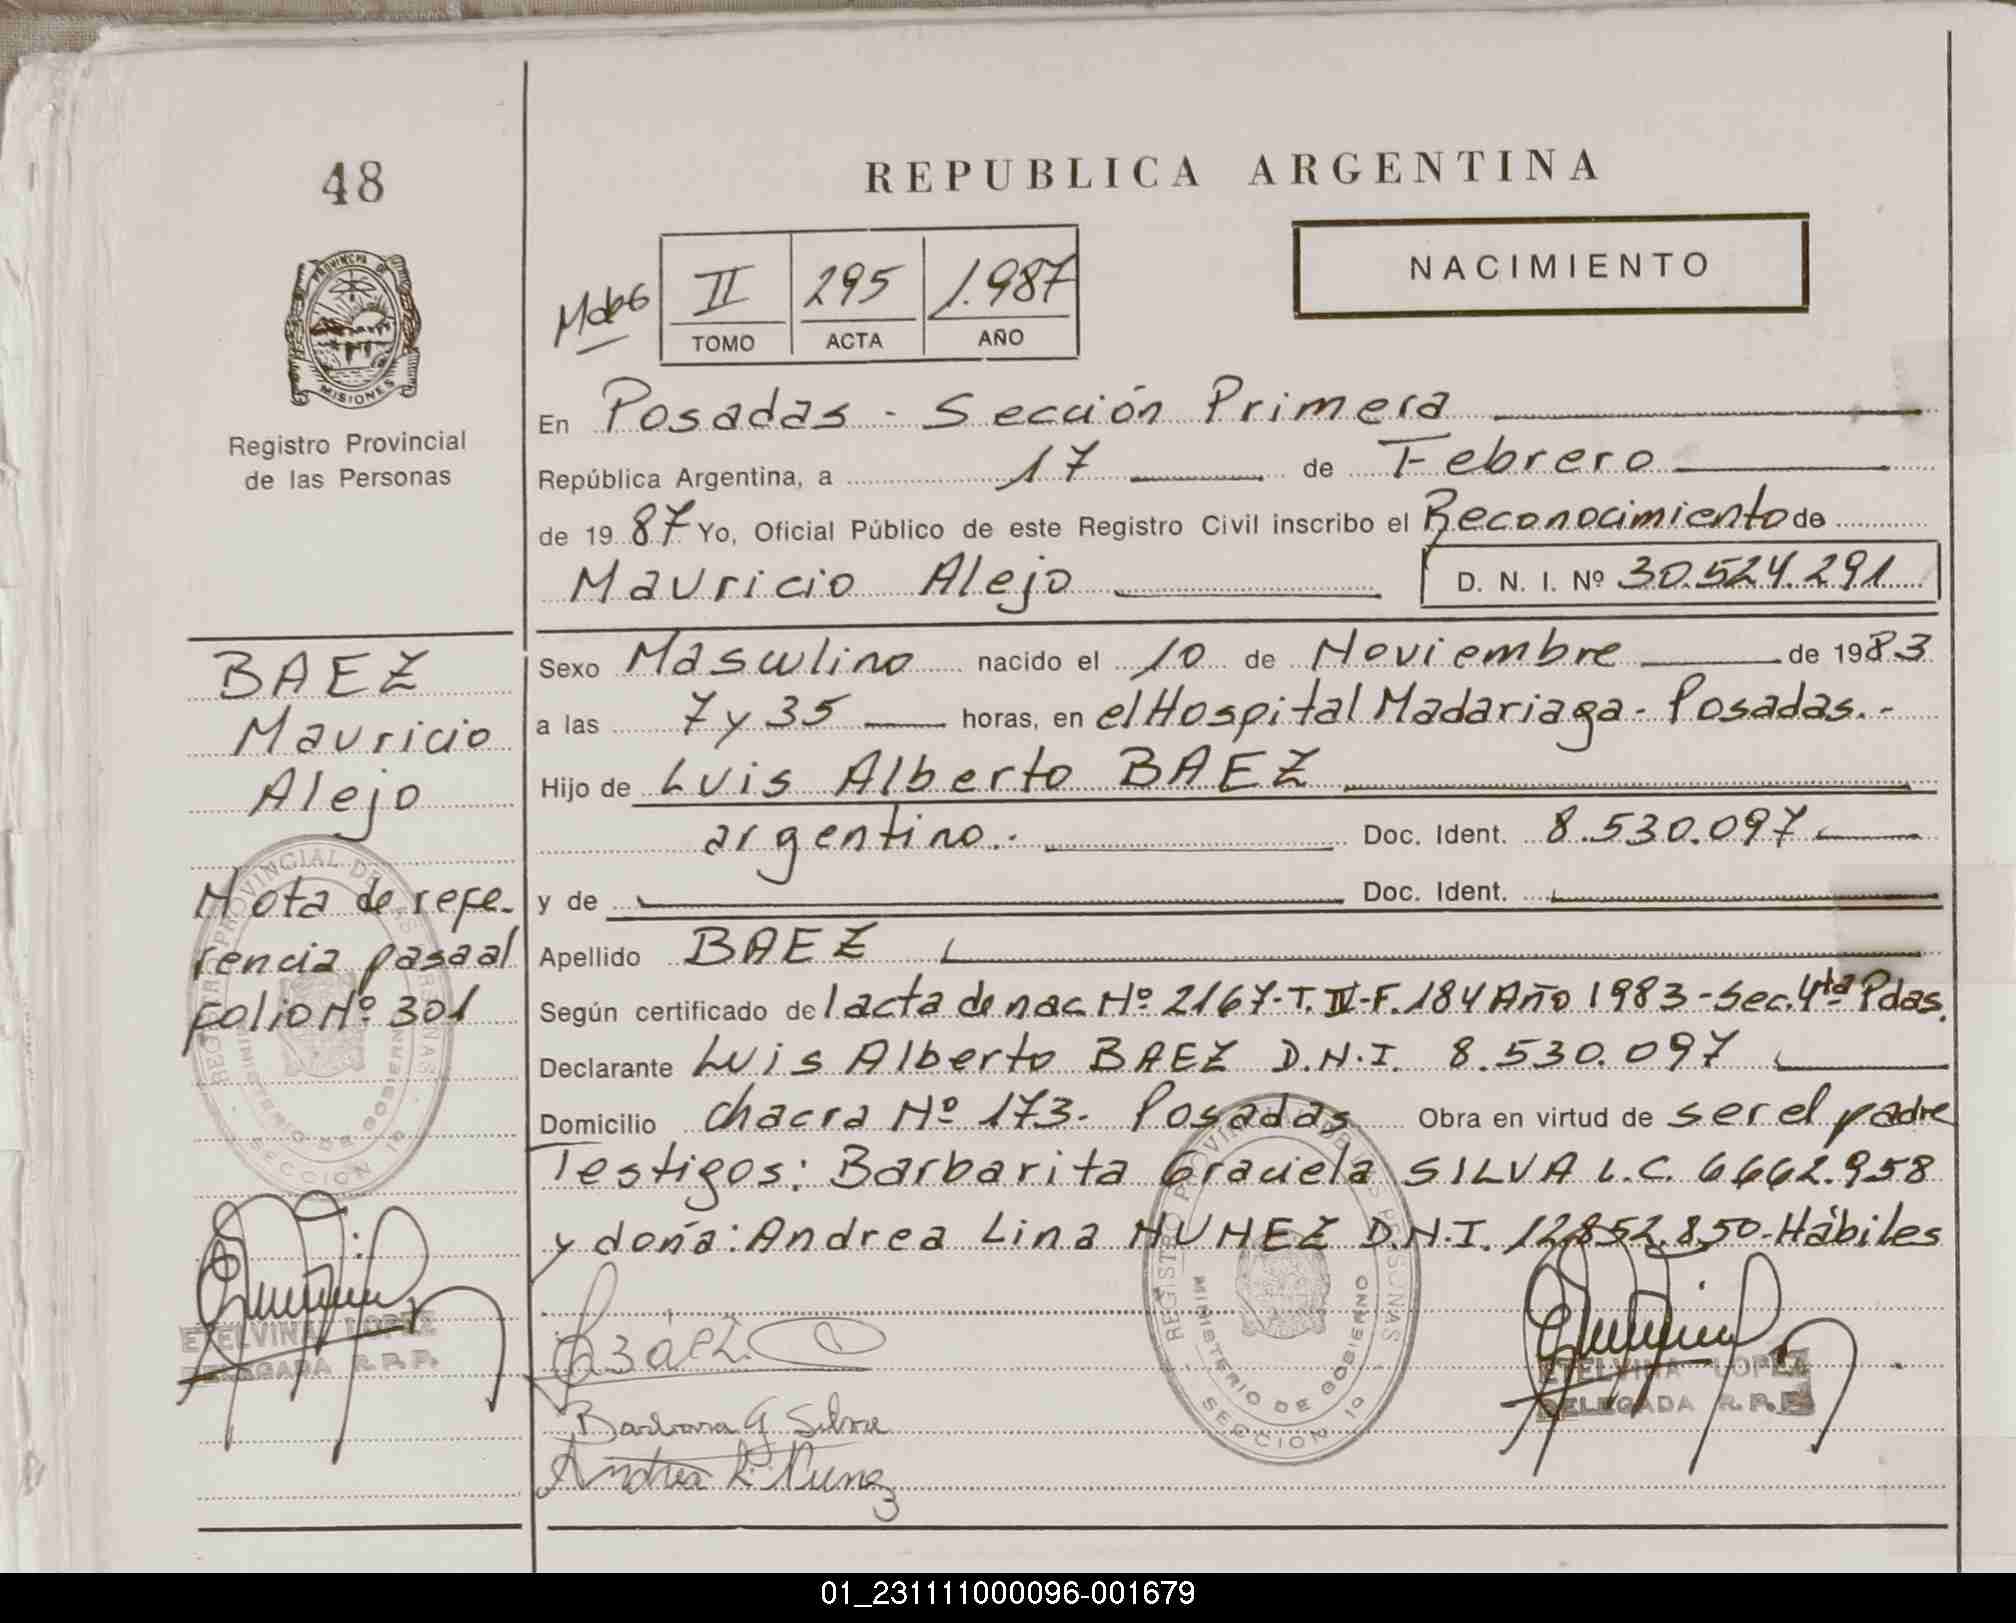 48
REPUBLICA ARGENTINA
NACIMIENTO
II 295 1.987
TOMO ACTA AÑO
PROVINCIA DE MISIONES
Registro Provincial
de las Personas
En Posadas - Sección Primera
República Argentina, a 17 de Febrero
de 1987 Yo, Oficial Público de este Registro Civil inscribo el Reconocimiento de
Mauricio Alejo D. N. I. Nº 30.524.291
BAEZ
Mauricio
Alejo
Nota de refe-
rencia pasa al
folio Nº 301
Sexo Masculino nacido el 10 de Noviembre de 1983
a las 7 y 35 horas, en el Hospital Madariaga - Posadas.-
Hijo de Luis Alberto BAEZ
argentino.- Doc. Ident. 8.530.097
y de Doc. Ident.
Apellido BAEZ
Según certificado de l acta de nac Nº 2167-T. IV-F. 184 Año 1983 - Sec. 4ta Pdas.
Declarante Luis Alberto BAEZ D.N.I. 8.530.097
Domicilio Chacra Nº 173- Posadas Obra en virtud de ser el padre
Testigos: Barbarita Graciela SILVA L.C. 6662.958
y doña: Andrea Lina NUNEZ D.N.I. 12.852.850-Hábiles
REGISTRO PROVINCIAL DE LAS PERSONAS
MINISTERIO DE GOBIERNO
SECCION 1º
ETELVINA LOPEZ
DELEGADA R.P.P.
Baez
Barbara G Silva
Andrea L. Nunez
REGISTRO PROVINCIAL DE LAS PERSONAS
MINISTERIO DE GOBIERNO
SECCION 1º
ETELVINA LOPEZ
DELEGADA R.P.P.
01_231111000096-001679